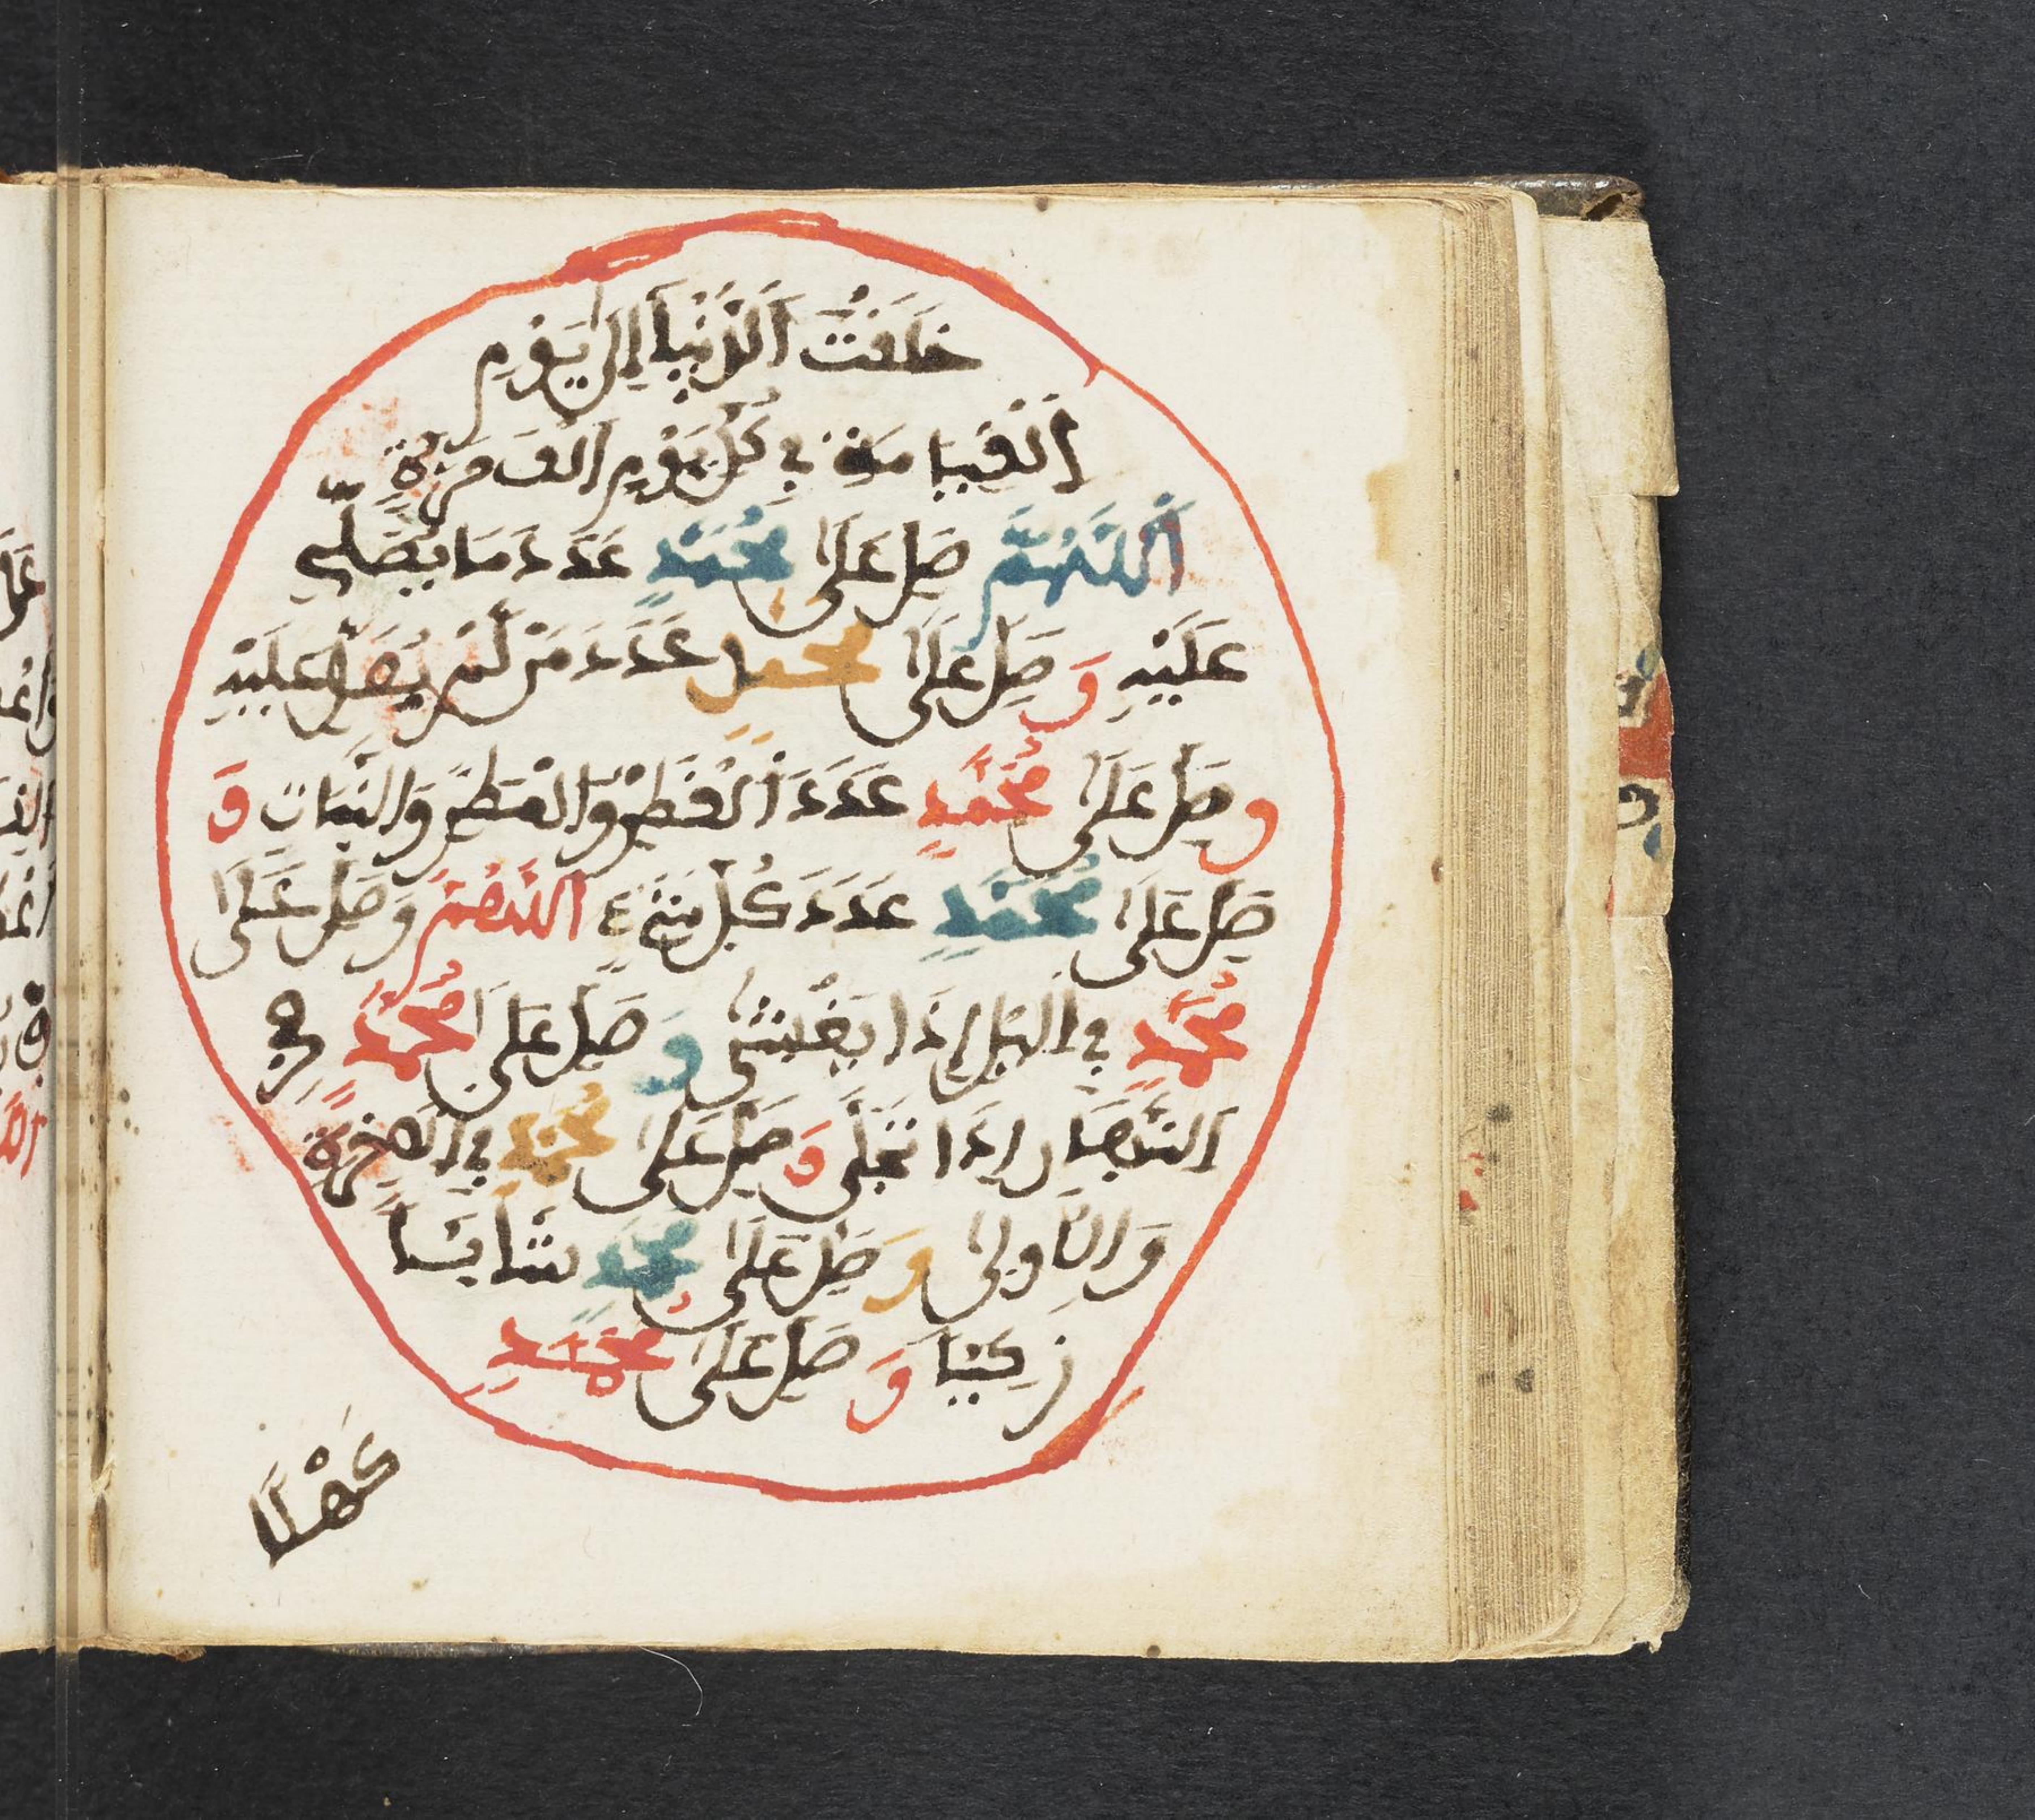 خَلَقْتَ الدُّنْيَا إِلَى يَوْمِ
الْقِيَامَةِ فِي كُلِّ يَوْمٍ أَلْفَ مَرَّةٍ
اَللَّهُمَّ صَلِّ عَلَى مُحَمَّدٍ عَدَدَ مَا يُصَلِّي
عَلَيْهِ وَصَلِّ عَلَى مُحَمَّدٍ عَدَدَ مَنْ لَمْ يُصَلِّ عَلَيْهِ
وَصَلِّ عَلَى مُحَمَّدٍ عَدَدَ الْقَطْرِ وَالْمَطَرِ وَالنَّبَاتِ وَ
صَلِّ عَلَى مُحَمَّدٍ عَدَدَ كُلِّ شَيْءٍ اللَّهُمَّ وَصَلِّ عَلَى
مُحَمَّدٍ فِي الَّيْلِ إِذَا يَغْشَى وَصَلِّ عَلَى مُحَمَّدٍ فِي
النَّهَارِ إِذَا تَجَلَّى وَصَلِّ عَلَى مُحَمَّدٍ فِي الْأَخِرَةِ
وَالْأُولَى وَصَلِّ عَلَى مُحَمَّدٍ شَابًّا
زَكِيًّا وَصَلِّ عَلَى مُحَمَّدٍ
كَهْلًا